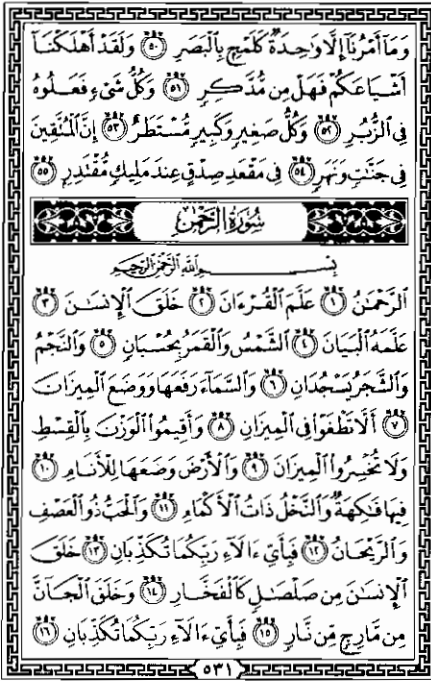 وَمَآ أَمْرُنَآ إِلَّا وَٰحِدَةٌ كَلَمْحٍۭ بِٱلْبَصَرِ ٥٠ وَلَقَدْ أَهْلَكْنَآ
أَشْيَاعَكُمْ فَهَلْ مِن مُّدَّكِرٍ ٥١ وَكُلُّ شَىْءٍ فَعَلُوهُ
فِى ٱلزُّبُرِ ٥٢ وَكُلُّ صَغِيرٍ وَكَبِيرٍ مُّسْتَطَرٌ ٥٣ إِنَّ ٱلْمُتَّقِينَ
فِى جَنَّٰتٍ وَنَهَرٍ ٥٤ فِى مَقْعَدِ صِدْقٍ عِندَ مَلِيكٍ مُّقْتَدِرٍۭ ٥٥
سُورَةُ الرَّحْمٰن
بِسْمِ ٱللَّهِ ٱلرَّحْمَٰنِ ٱلرَّحِيمِ
ٱلرَّحْمَٰنُ ١ عَلَّمَ ٱلْقُرْءَانَ ٢ خَلَقَ ٱلْإِنسَٰنَ ٣
عَلَّمَهُ ٱلْبَيَانَ ٤ ٱلشَّمْسُ وَٱلْقَمَرُ بِحُسْبَانٍ ٥ وَٱلنَّجْمُ
وَٱلشَّجَرُ يَسْجُدَانِ ٦ وَٱلسَّمَآءَ رَفَعَهَا وَوَضَعَ ٱلْمِيزَانَ
٧ أَلَّا تَطْغَوْا۟ فِى ٱلْمِيزَانِ ٨ وَأَقِيمُوا۟ ٱلْوَزْنَ بِٱلْقِسْطِ
وَلَا تُخْسِرُوا۟ ٱلْمِيزَانَ ٩ وَٱلْأَرْضَ وَضَعَهَا لِلْأَنَامِ ١٠
فِيهَا فَٰكِهَةٌ وَٱلنَّخْلُ ذَاتُ ٱلْأَكْمَامِ ١١ وَٱلْحَبُّ ذُو ٱلْعَصْفِ
وَٱلرَّيْحَانُ ١٢ فَبِأَىِّ ءَالَآءِ رَبِّكُمَا تُكَذِّبَانِ ١٣ خَلَقَ
ٱلْإِنسَٰنَ مِن صَلْصَٰلٍ كَٱلْفَخَّارِ ١٤ وَخَلَقَ ٱلْجَآنَّ
مِن مَّارِجٍ مِّن نَّارٍ ١٥ فَبِأَىِّ ءَالَآءِ رَبِّكُمَا تُكَذِّبَانِ ١٦
٥٣١